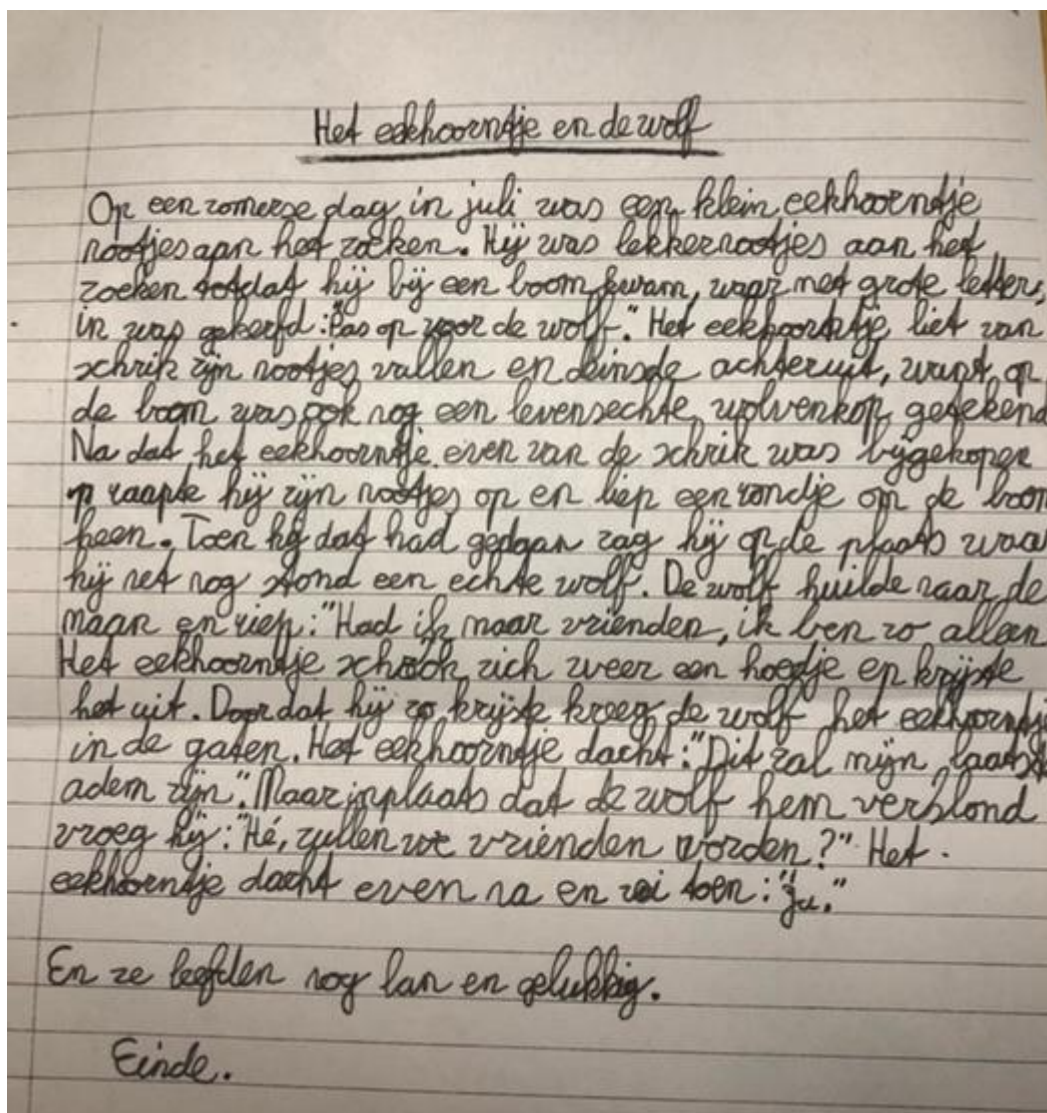 Het eekhoorntje en de wolf
Op een zomerse dag in juli was een klein eekhoorntje
nootjes aan het zoeken. Hij was lekker nootjes aan het
zoeken totdat hij bij een boom kwam, waar met grote letters
in was gekerfd: "Pas op voor de wolf." Het eekhoorntje liet van
schrik zijn nootjes vallen en deinsde achteruit, want op
de boom was ook nog een levensechte wolvenkop getekend
Na dat het eekhoorntje even van de schrik was bijgekomen
raapte hij zijn nootjes op en liep een rondje om de boom
heen. Toen hij dat had gedaan zag hij op de plaats waar
hij net nog stond een echte wolf. De wolf huilde naar de
maan en riep: "Had ik maar vrienden, ik ben zo alleen
Het eekhoorntje schrok zich weer een hoedje en krijste
het uit. Doordat hij zo krijste kreeg de wolf het eekhoorntje
in de gaten. Het eekhoorntje dacht: "Dit zal mijn laatste
adem zijn." Maar inplaats dat de wolf hem verslond
vroeg hij: "Hé, zullen we vrienden worden?" Het
eekhoorntje dacht even na en zei toen: "Ja."
En ze leefden nog lan en gelukkig.
Einde.